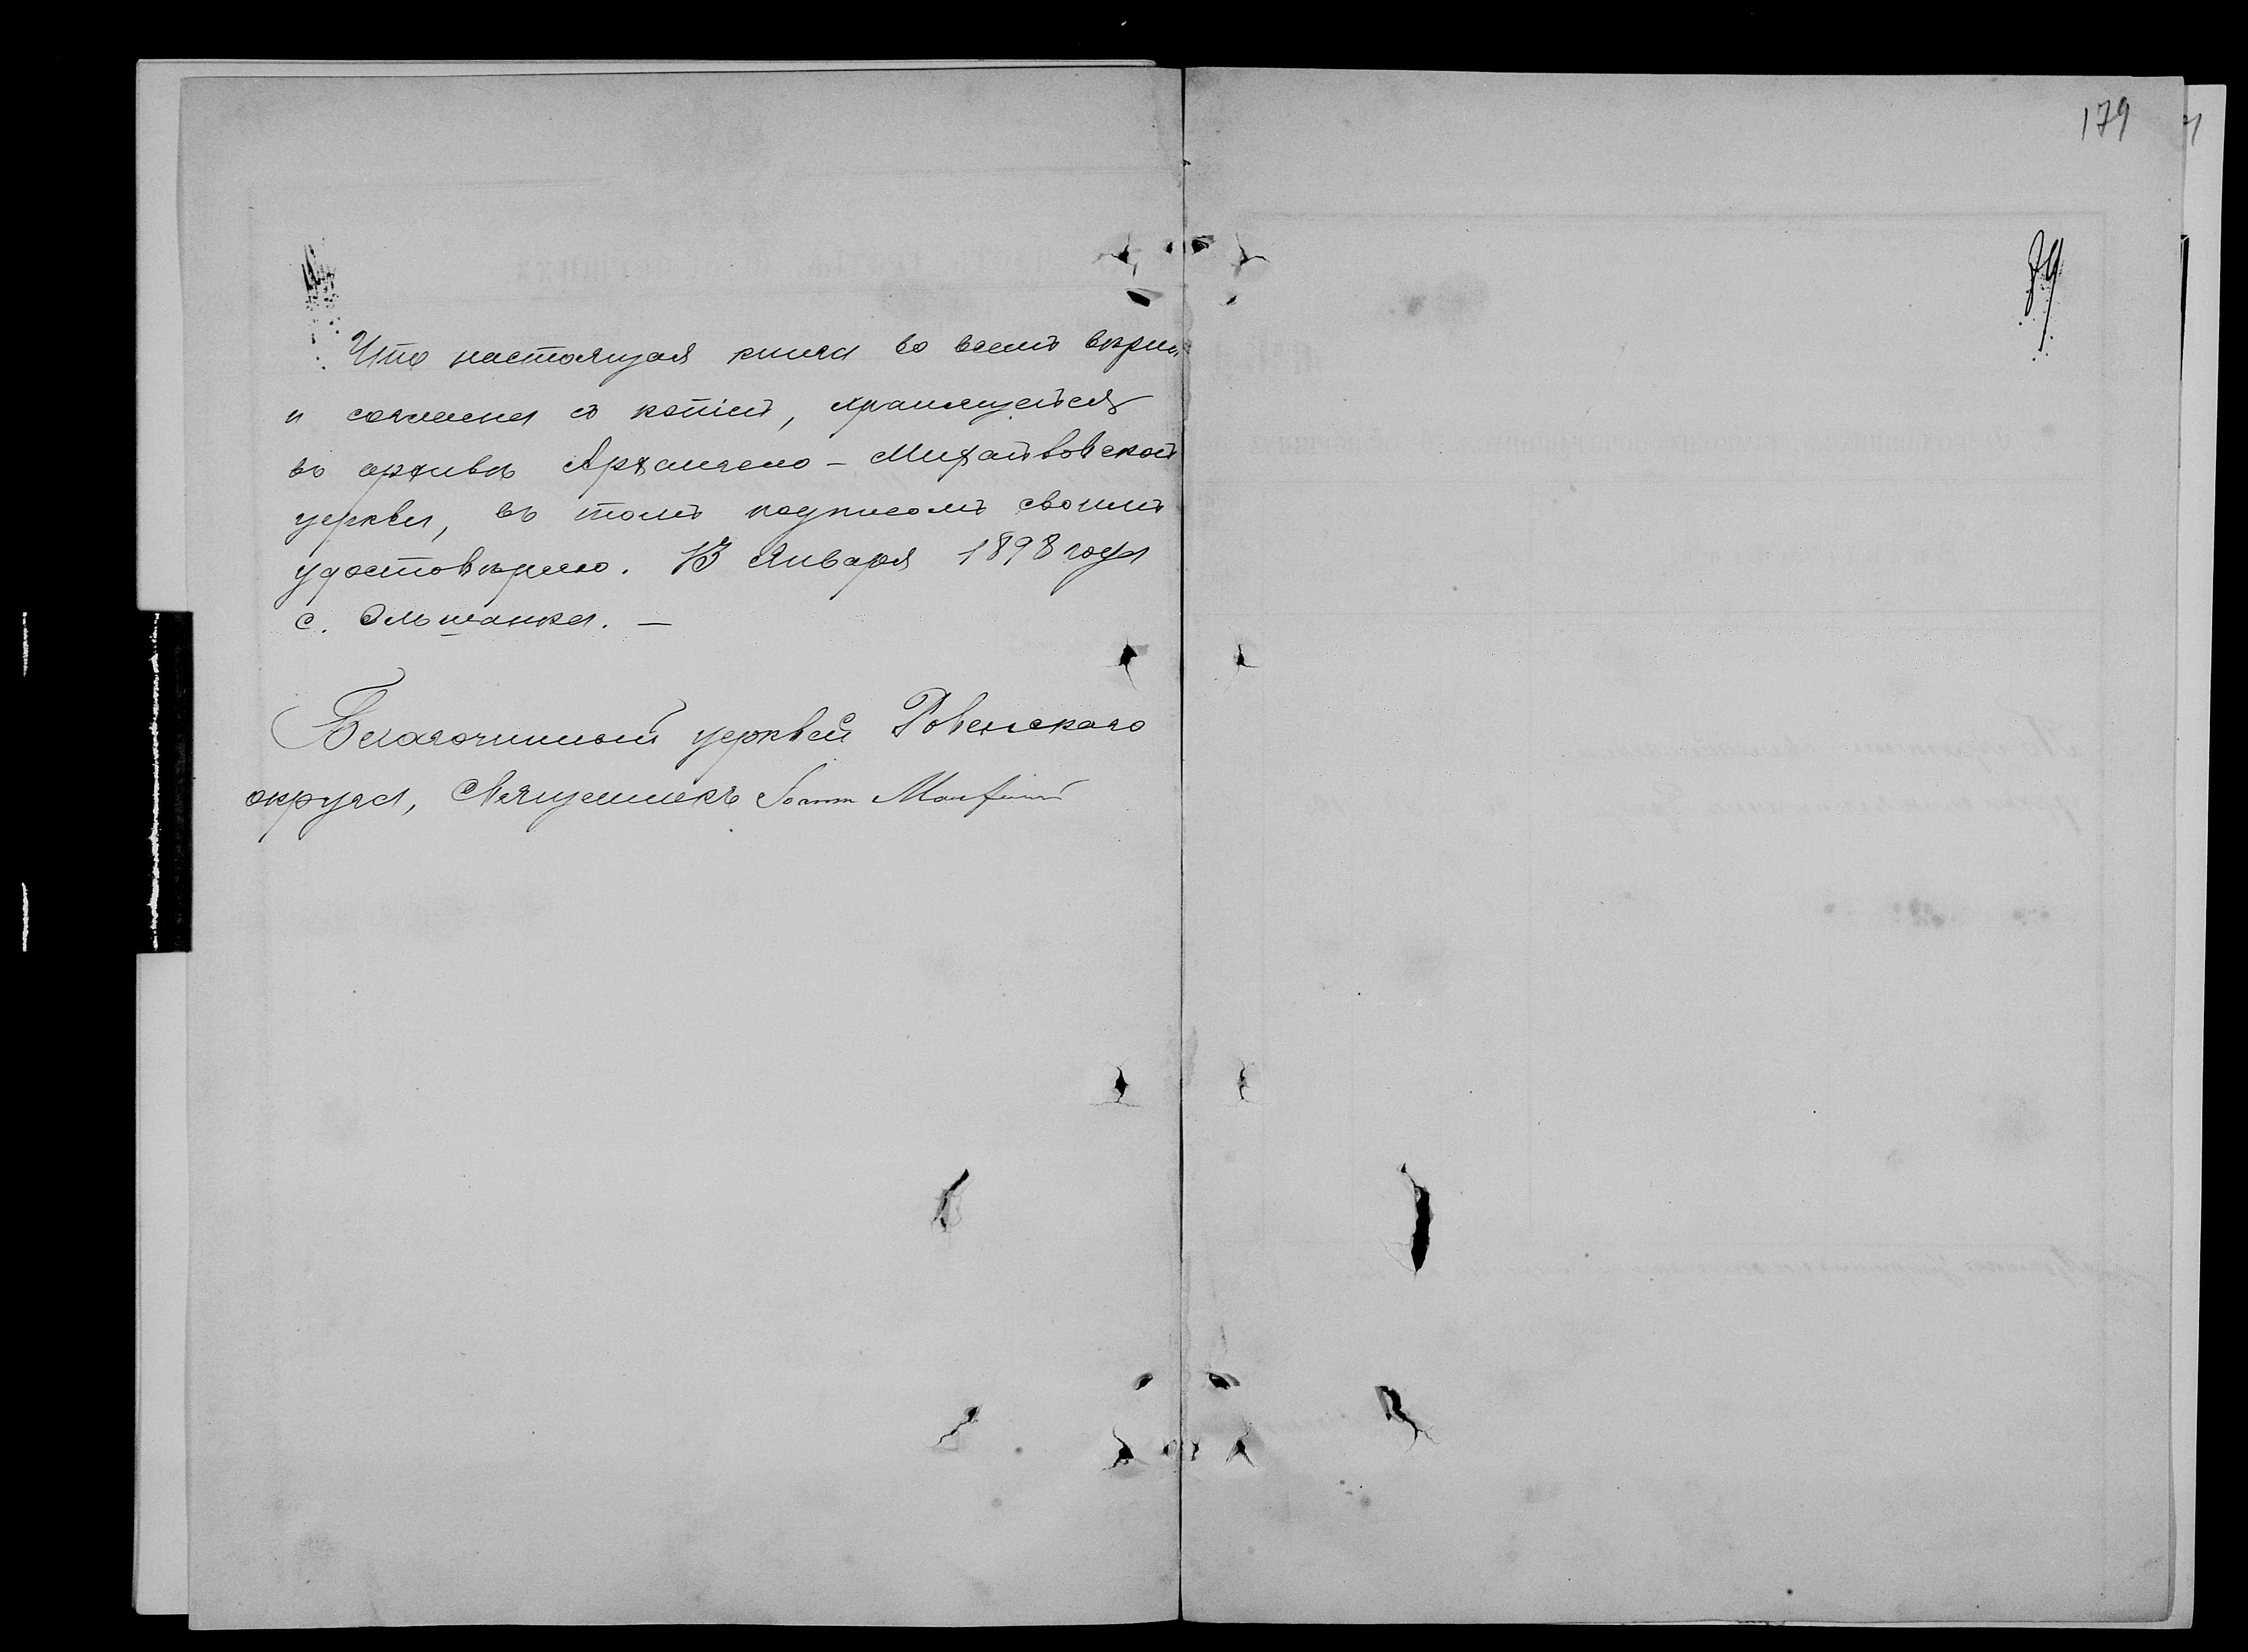 Что настоящая книга во всемъ вѣрна
и согласна съ копіей, хранящейся
въ архивѣ Архангело-Михайловской
церкви, въ томъ подписомъ своимъ
удостовѣряю. 13 Января 1898 года
с. Ольшанка. —
Благочинный церквей Ровенскаго
округа, Священникъ Іоаннъ
179
79